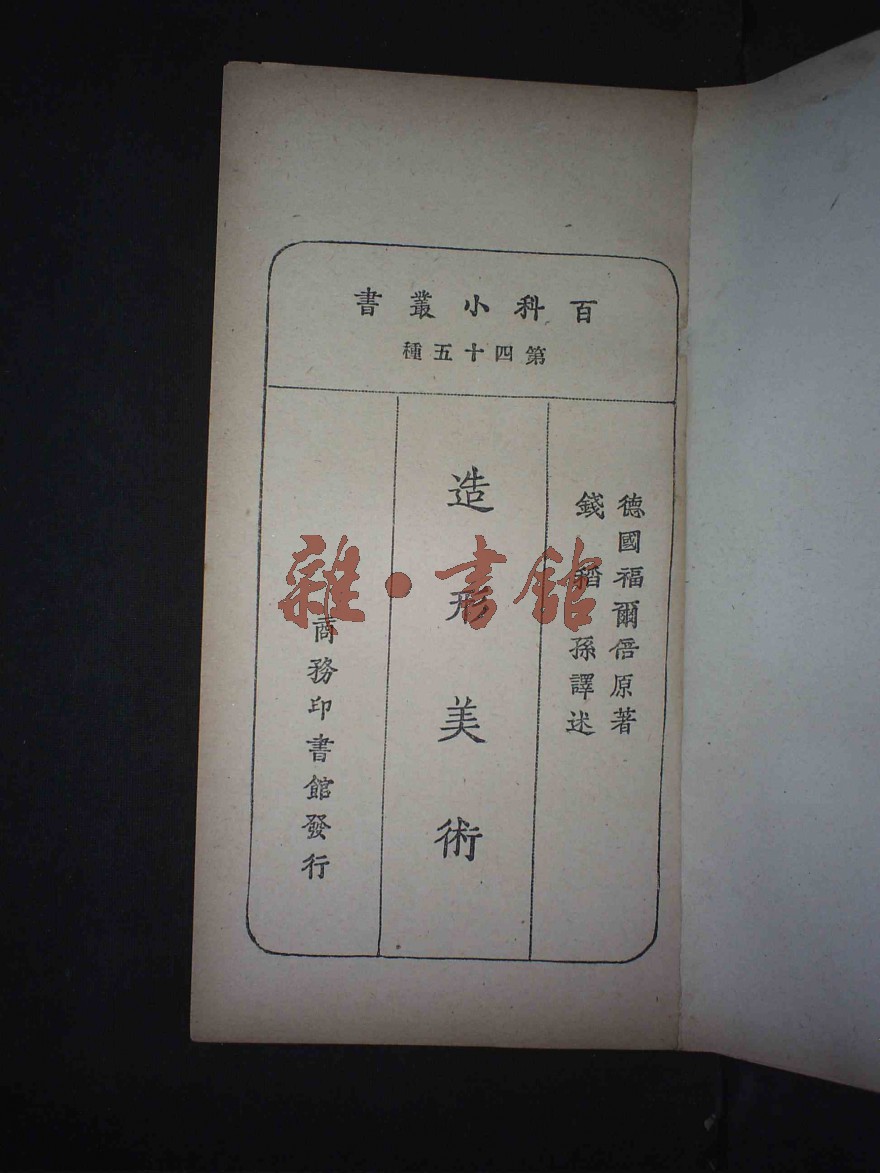 百科小叢書
第四十五種
德國福爾倍原著
錢稻孫譯述
造形美術
商務印書館發行
雜·書館